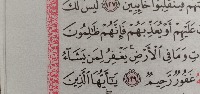 هُمْ فَيَنقَلِبُوا۟ خَآئِبِينَ ١٢٧ لَيْسَ لَكَ
عَلَيْهِمْ أَوْ يُعَذِّبَهُمْ فَإِنَّهُمْ ظَٰلِمُونَ
وَٰتِ وَمَا فِى ٱلْأَرْضِ ۚ يَغْفِرُ لِمَن يَشَآءُ
غَفُورٌ رَّحِيمٌ ١٢٩ يَٰٓأَيُّهَا ٱلَّذِينَ